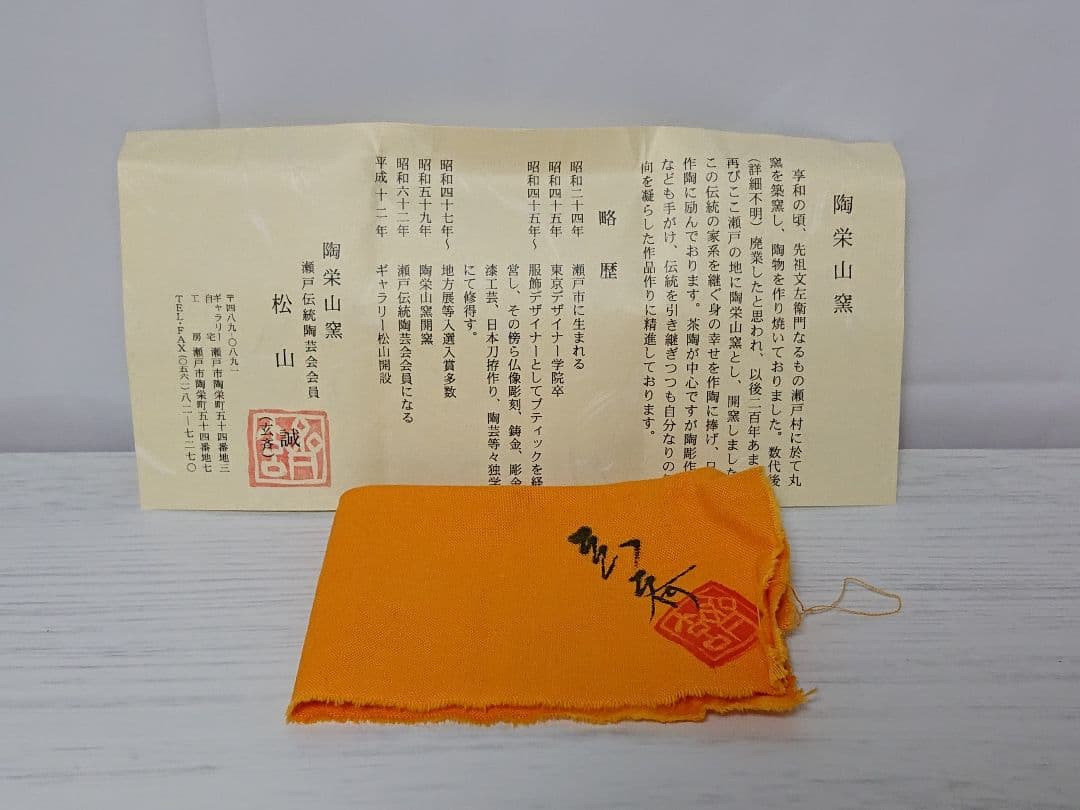 陶栄山窯
享和の頃、先祖文左衛門なるもの瀬戸村に於て丸
窯を築窯し、陶物を作り焼いておりました。数代後
(詳細不明)廃業したと思われ、以後二百年あま
再びここ瀬戸の地に陶栄山窯とし、開窯しました
この伝統の家系を継ぐ身の幸せを作陶に捧げ、
作陶に励んでおります。茶陶が中心ですが陶彫作
なども手がけ、伝統を引き継ぎつつも自分なりの
向を凝らした作品作りに精進しております。
略歴
昭和二十四年 瀬戸市に生まれる
昭和四十五年 東京デザイナー学院卒
昭和四十五年~ 服飾デザイナーとしてブティックを経
営し、その傍ら仏像彫刻、鋳金、彫金
漆工芸、日本刀拵作り、陶芸等々独学
にて修得す。
昭和四十七年~ 地方展等入選入賞多数
昭和五十九年 陶栄山窯開窯
昭和六十二年 瀬戸伝統陶芸会会員になる
平成十二年 ギャラリー松山開設
陶栄山窯
瀬戸伝統陶芸会会員
松山 誠
(玄斉)
〒四八九-〇八九一
ギャラリー 瀬戸市陶栄町五十四番地三
自宅 瀬戸市陶栄町五十四番地七
工房
TEL・FAX(〇五六一)八二-七二七〇